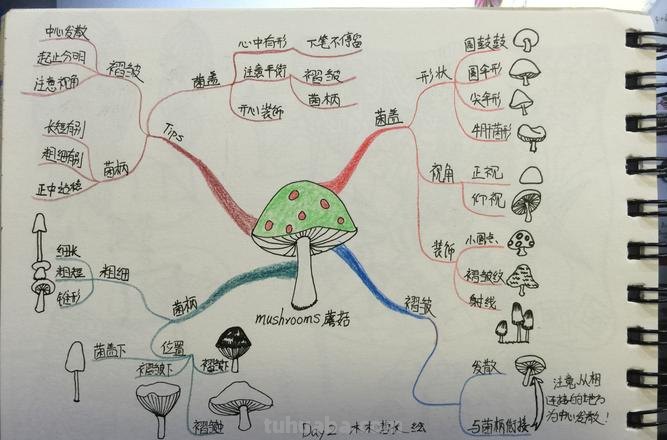 中心发散
起止分明
注意视角
褶皱
长短有别
粗细有别
正中站稳
菌柄
Tips
菌盖
心中有形
下笔不停留
注意平衡
褶皱
菌柄
开心装饰
菌盖
形状
圆鼓鼓
圆伞形
尖伞形
牛肝菌形
视角
正视
仰视
装饰
小圆点
褶皱纹
射线
mushrooms 蘑菇
褶皱
发散
与菌柄衔接
注意从相
连接的地方
为中心发散!
菌柄
粗细
细长
粗短
锥形
位置
菌盖下
褶皱下
褶皱下
褶皱
Day2
绘